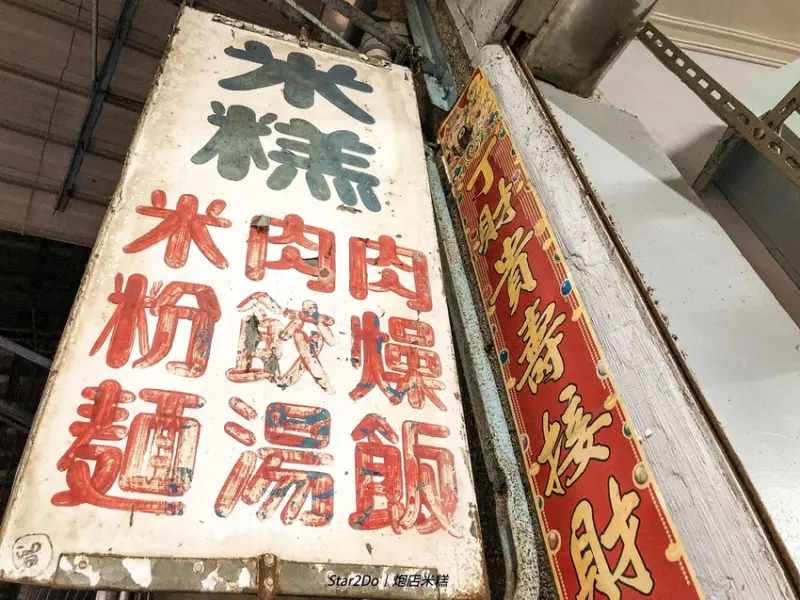 米糕
肉燥飯
肉餃湯
米粉麵
丁財貴壽接財
Star2Do | 炮店米糕